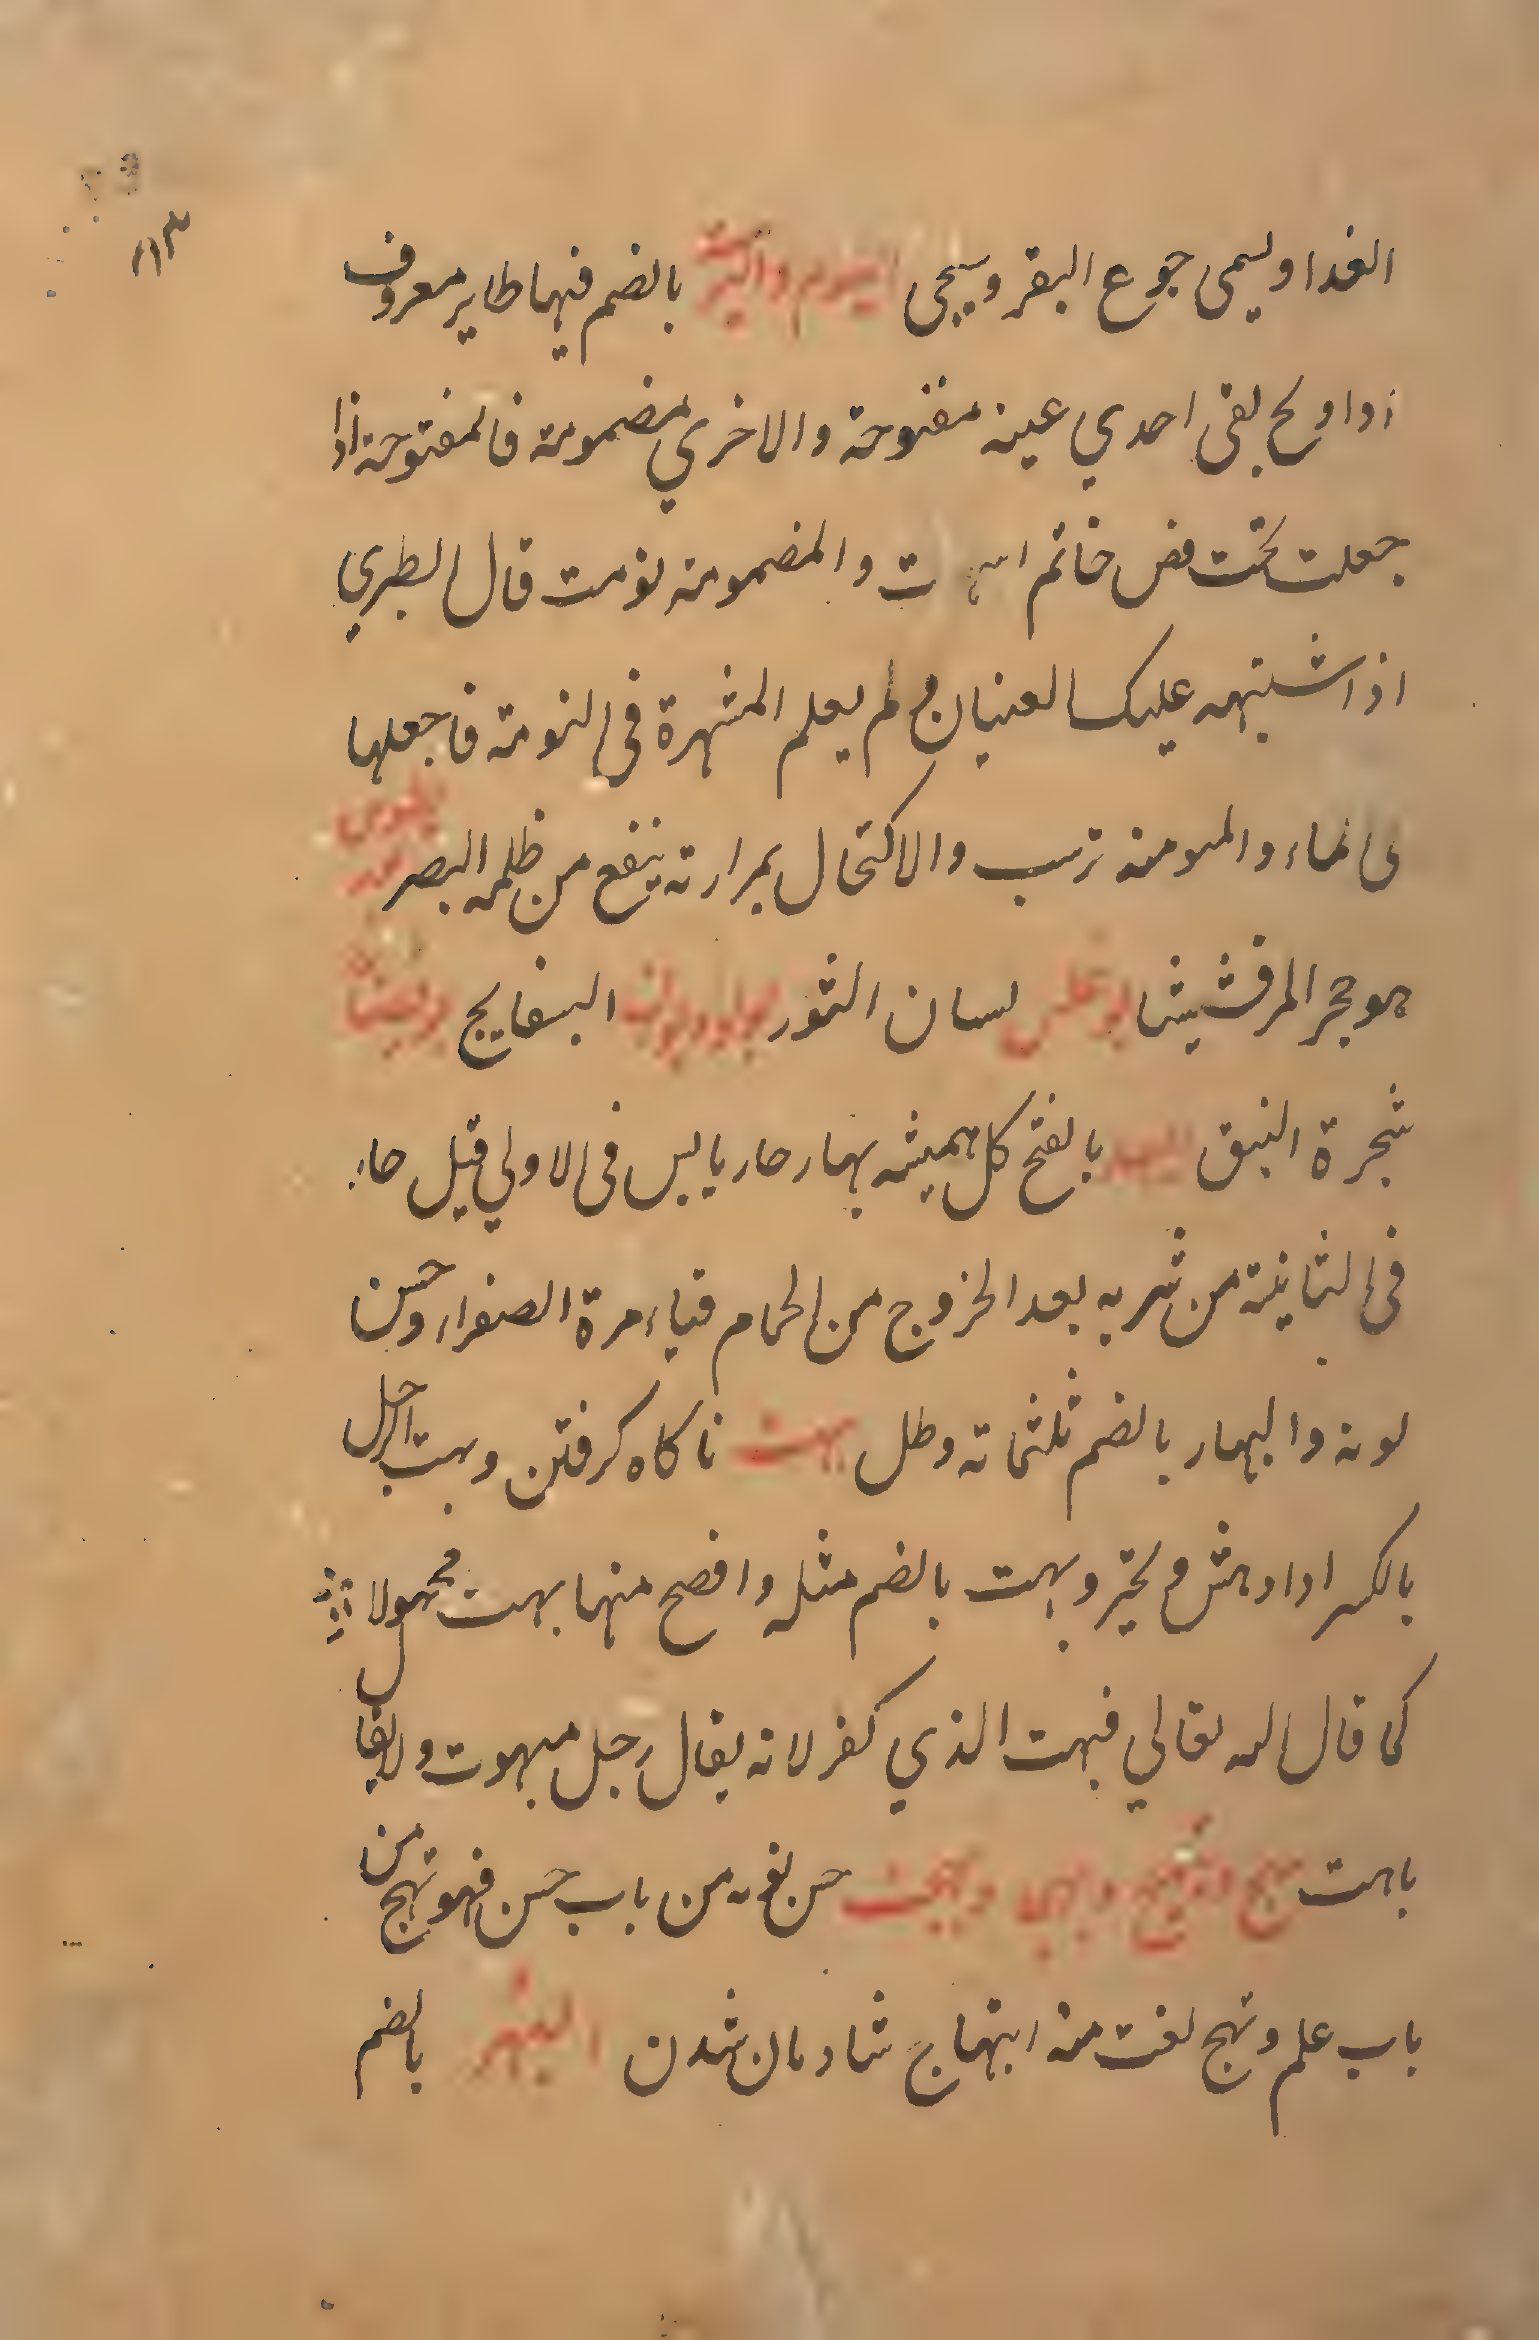 ١١٣
الغدا ويسمى جوع البقر وسيجى البوم والبومة بالضم فيهما طاير معروف
اذا ذبح بقى احدي عينه مفتوحة والاخري مضمومة فالمفتوحة اذا
جعلت تحت فص خاتم اسهرت والمضمومة نومت قال الطبري
اذا اشتبهه عليك العينان ولم يعلم المشهرة فى النومة فاجعلها
فى الماء والمنومة ترسب والاكتحال بمرارته ينفع من ظلمة البصر
هو حجر المرقشيشا لسان الثور البسفايج
شجرة النبق بالفتح كل هميشه بهار حار يابس فى الاولي قيل حار
فى الثانية من شربه بعد الخروج من الحمام قياء مرة الصفراء وحسن
لونه والبهار بالضم ثلثمائة رطل بهت ناكاه كرفتن وبهت الرجل
بالكسر اذا دهش وتحير وبهت بالضم مثله وافصح منها بهت مجهولا
كما قال الله تعالي فبهت الذي كفر لانه يقال رجل مبهوت ولا يقال
باهت حسن بغيره من باب حسن فهو بهج من
باب علم وبهج لغت منه ابتهاج شادمان شدن البهر بالضم